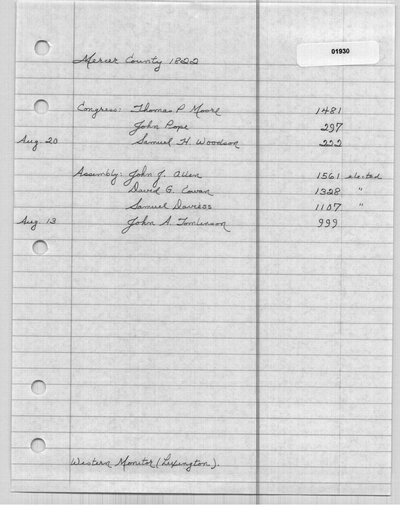 01930
Mercer County 1822
Congress: Thomas P. Moore 1481
John Pope 297
Aug. 20 Samuel H. Woodson 222
Assembly: John J. Allen 1561 elected
David G. Cowan 1328 "
Samuel Daviess 1107 "
Aug. 13 John A. Tomlinson 999
Western Monitor (Lexington).